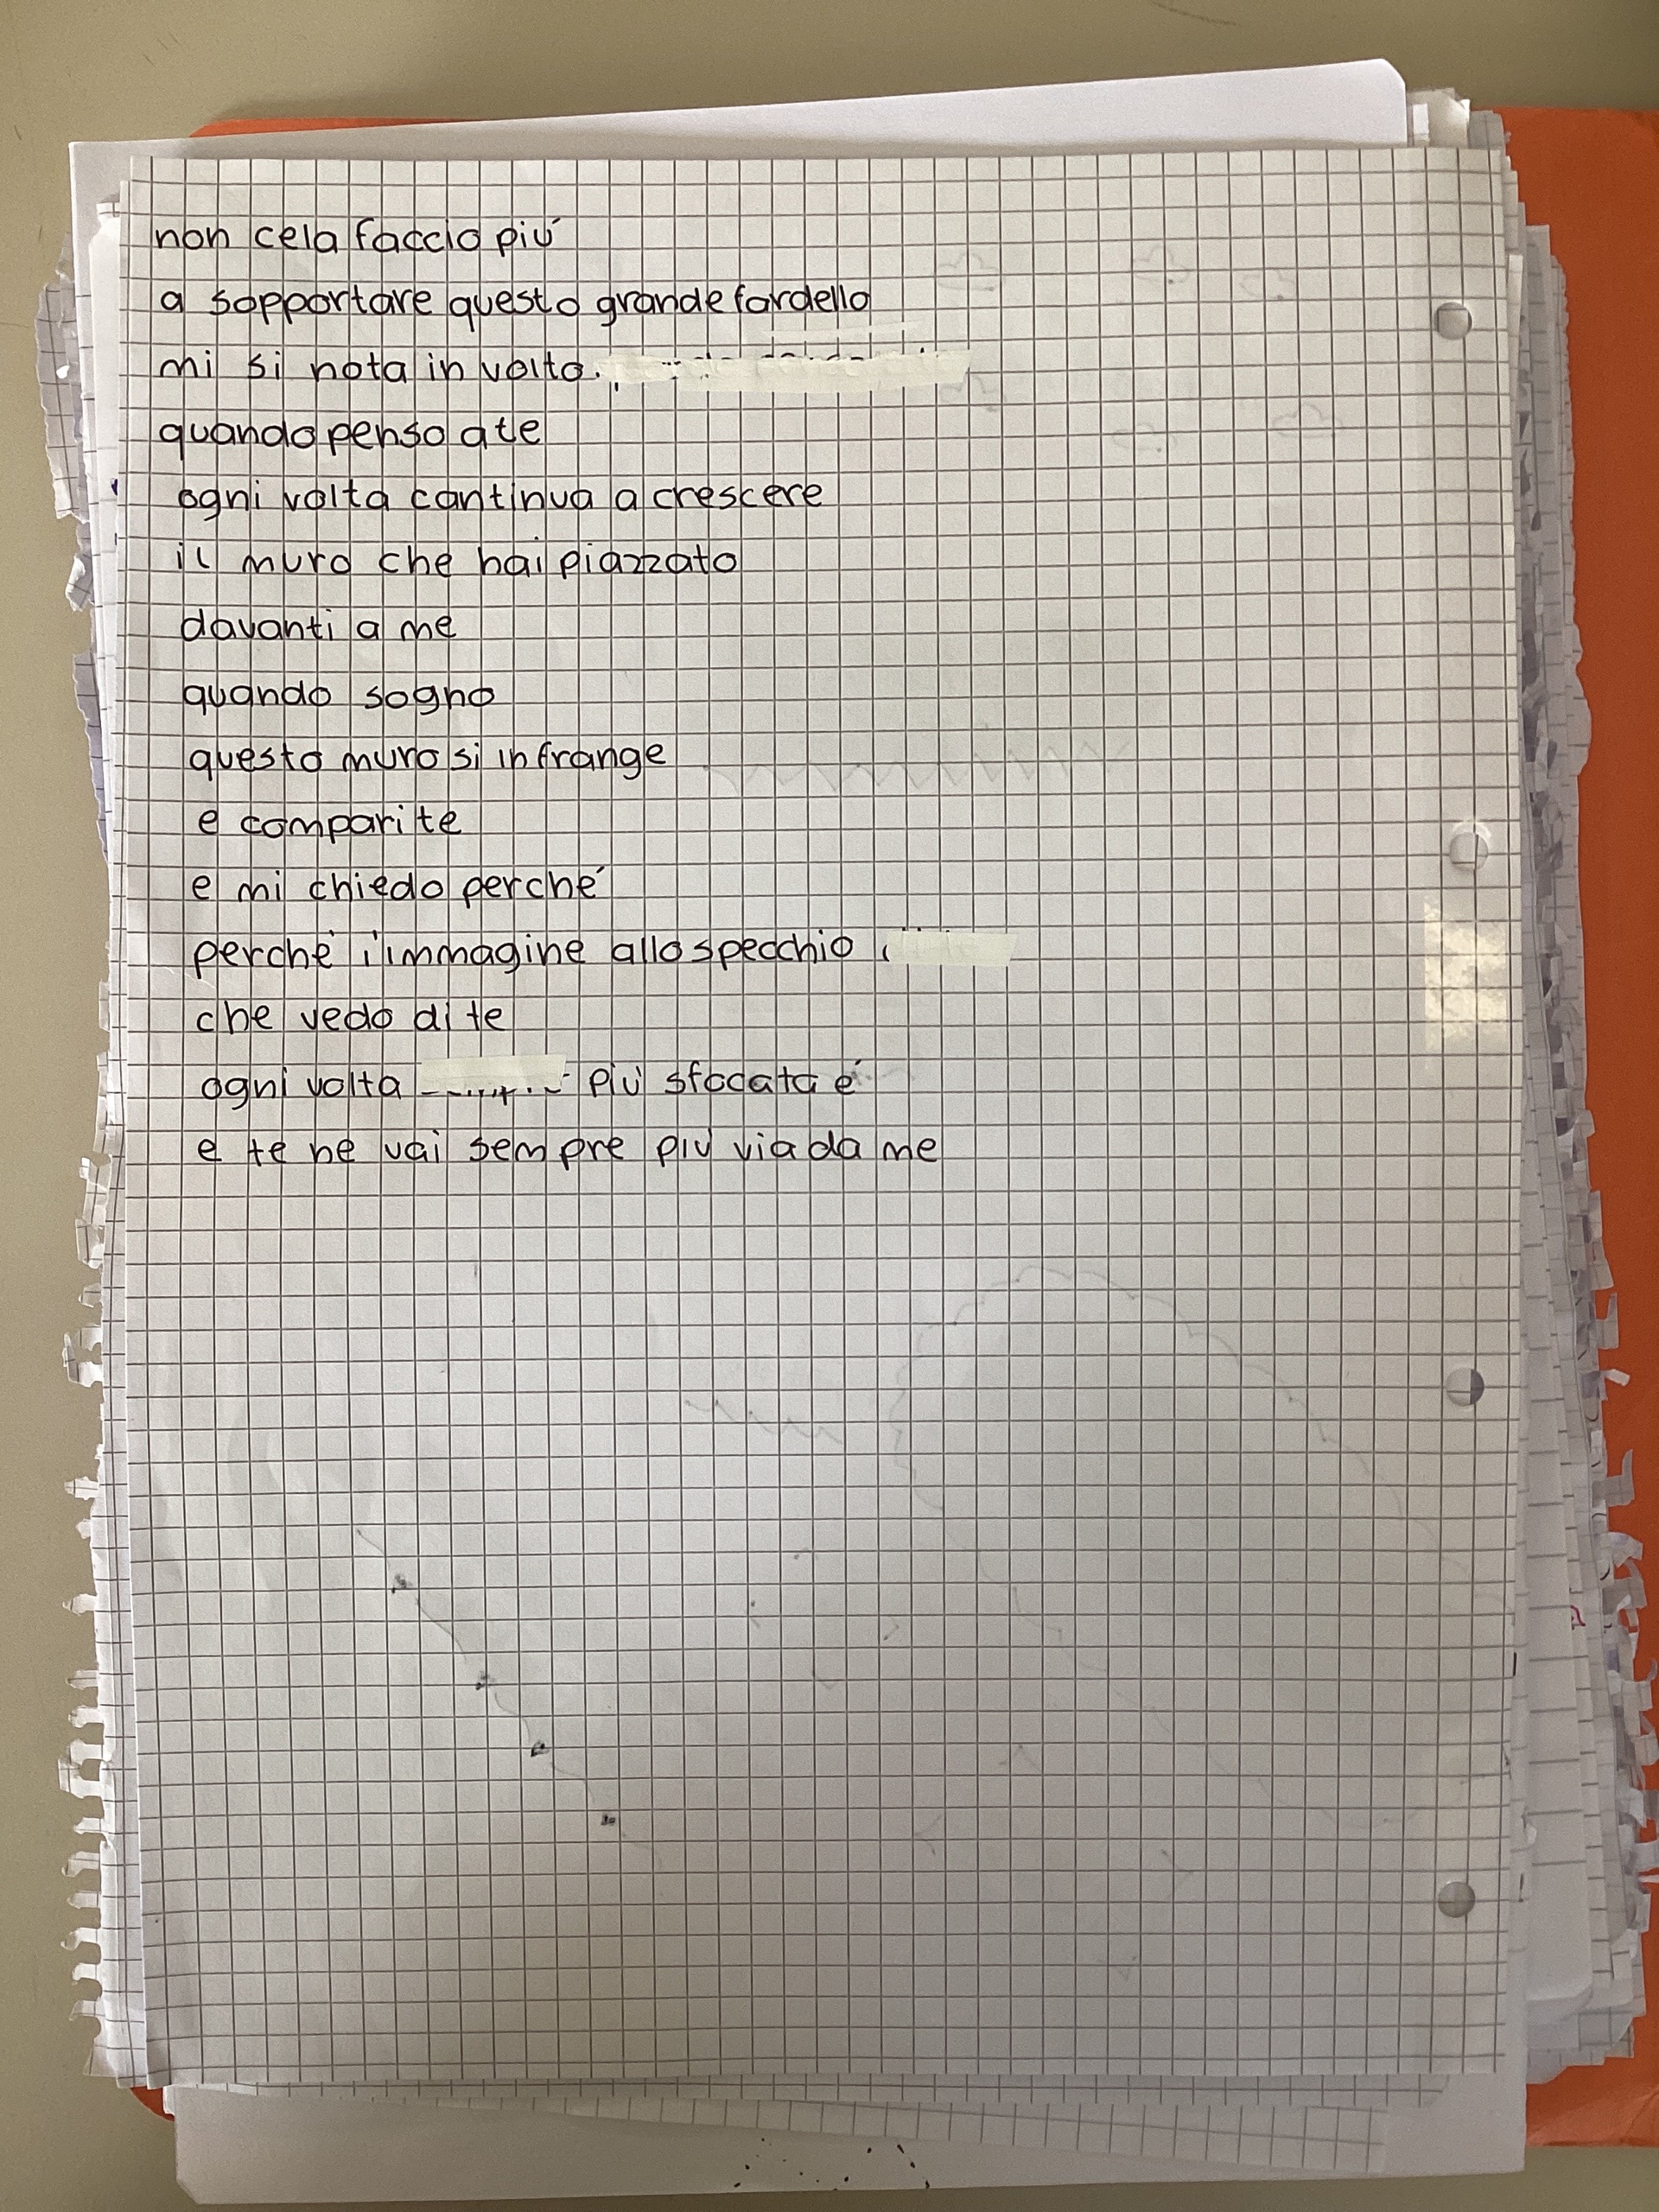 non cela faccio più
a sopportare questo grande fardello
mi si nota in volto.
quando penso a te
ogni volta continua a crescere
il muro che hai piazzato
davanti a me
quando sogno
questo muro si infrange
e compari te
e mi chiedo perché
perché l'immagine allo specchio
che vedo di te
ogni volta più sfocata é
e te ne vai sempre più via da me